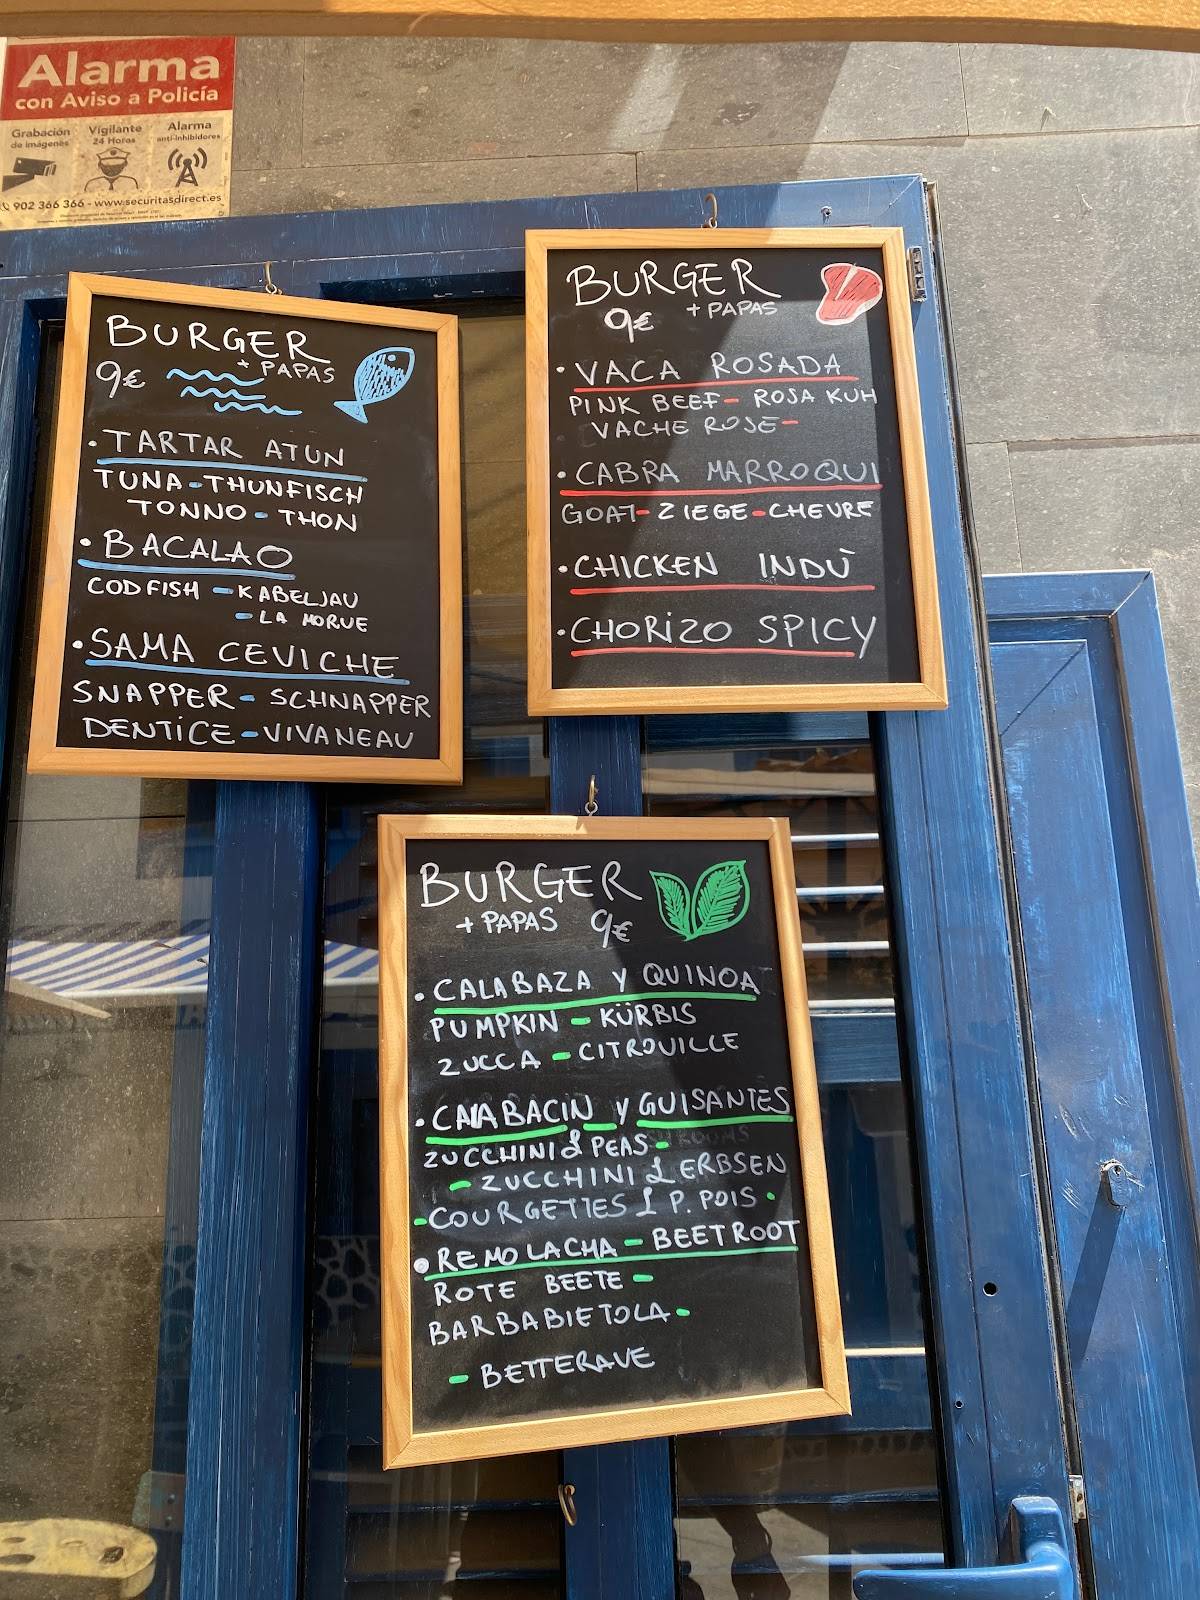 Alarma
con Aviso a Policía
Grabación
de imágenes
Vigilante
24 Horas
Alarma
anti-inhibidores
902 366 366 - www.securitasdirect.es
BURGER
+ PAPAS
9€
• TARTAR ATUN
TUNA - THUNFISCH
TONNO - THON
• BACALAO
CODFISH - KABELJAU
- LA MORUE
• SAMA CEVICHE
SNAPPER - SCHNAPPER
DENTICE - VIVANEAU
BURGER
9€ + PAPAS
• VACA ROSADA
PINK BEEF - ROSA KUH
VACHE ROSE -
• CABRA MARROQUI
GOAT - ZIEGE - CHEVRE
• CHICKEN INDÙ
• CHORIZO SPICY
BURGER
+ PAPAS 9€
• CALABAZA Y QUINOA
PUMPKIN - KÜRBIS
ZUCCA - CITROUILLE
• CALABACIN Y GUISANTES
ZUCCHINI & PEAS -
- ZUCCHINI & ERBSEN
- COURGETTES & P. POIS •
• REMOLACHA - BEETROOT
ROTE BEETE -
BARBABIETOLA -
- BETTERAVE